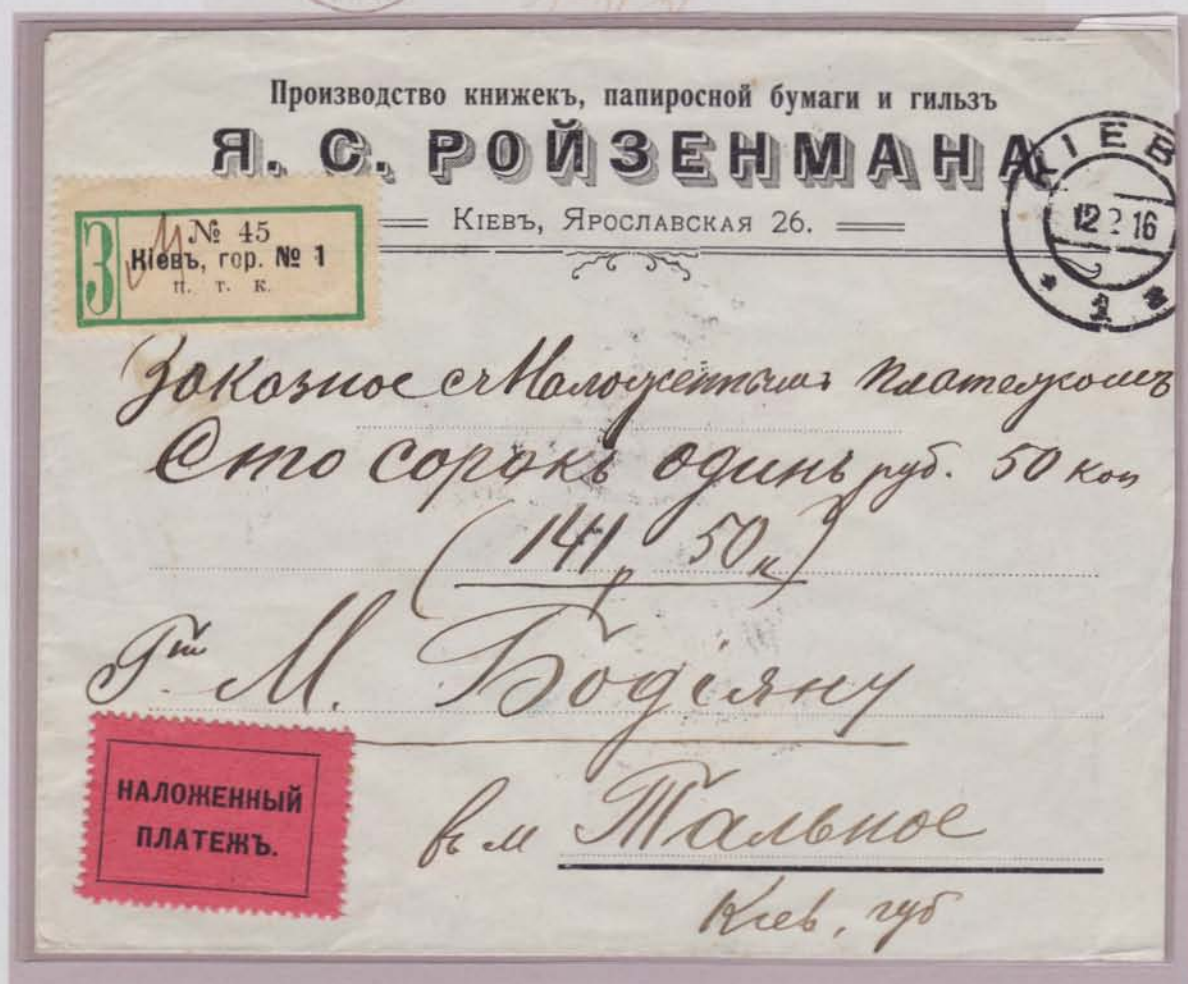 Производство книжекъ, папиросной бумаги и гильзъ
Я. С. РОЙЗЕНМАНА
Кіевъ, Ярославская 26.
КІЕВ
12 2 16
1
З
№ 45
Кіевъ, гор. № 1
п. т. к.
Заказное съ Наложеннымъ Платежомъ
Сто сорокъ одинъ руб. 50 коп
(141 р 50 к)
Гну М. Бодіяну
НАЛОЖЕННЫЙ
ПЛАТЕЖЪ.
въ м Тальное
Кіев, губ